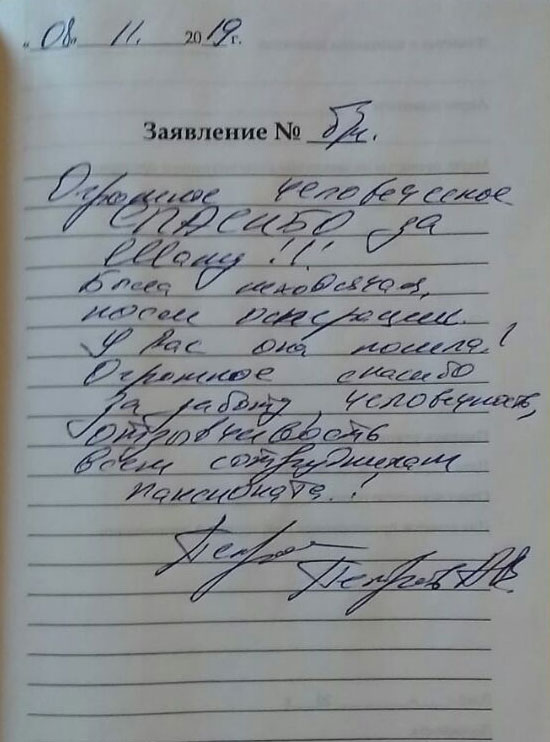 «08» 11. 2019 г.
Заявление № б/н.
Огромное человеческое
СПАСИБО за
Маму!!!
Была лежачая,
после операции.
У вас она пошла!
Огромное спасибо
за заботу, человечность,
отзывчивость
всем сотрудникам
пансионата.!
Петров А.В.